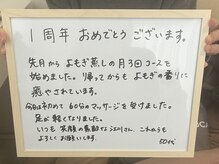 1周年 おめでとうございます。
先月から よもぎ蒸しの月3回コースを
始めました。帰ってからもよもぎの香りに
癒やされています。
今日は初めて 60分のマッサージを受けました。
足が軽くなりました。
いつも笑顔の素敵な さん、これからも
よろしくお願いします。
50代